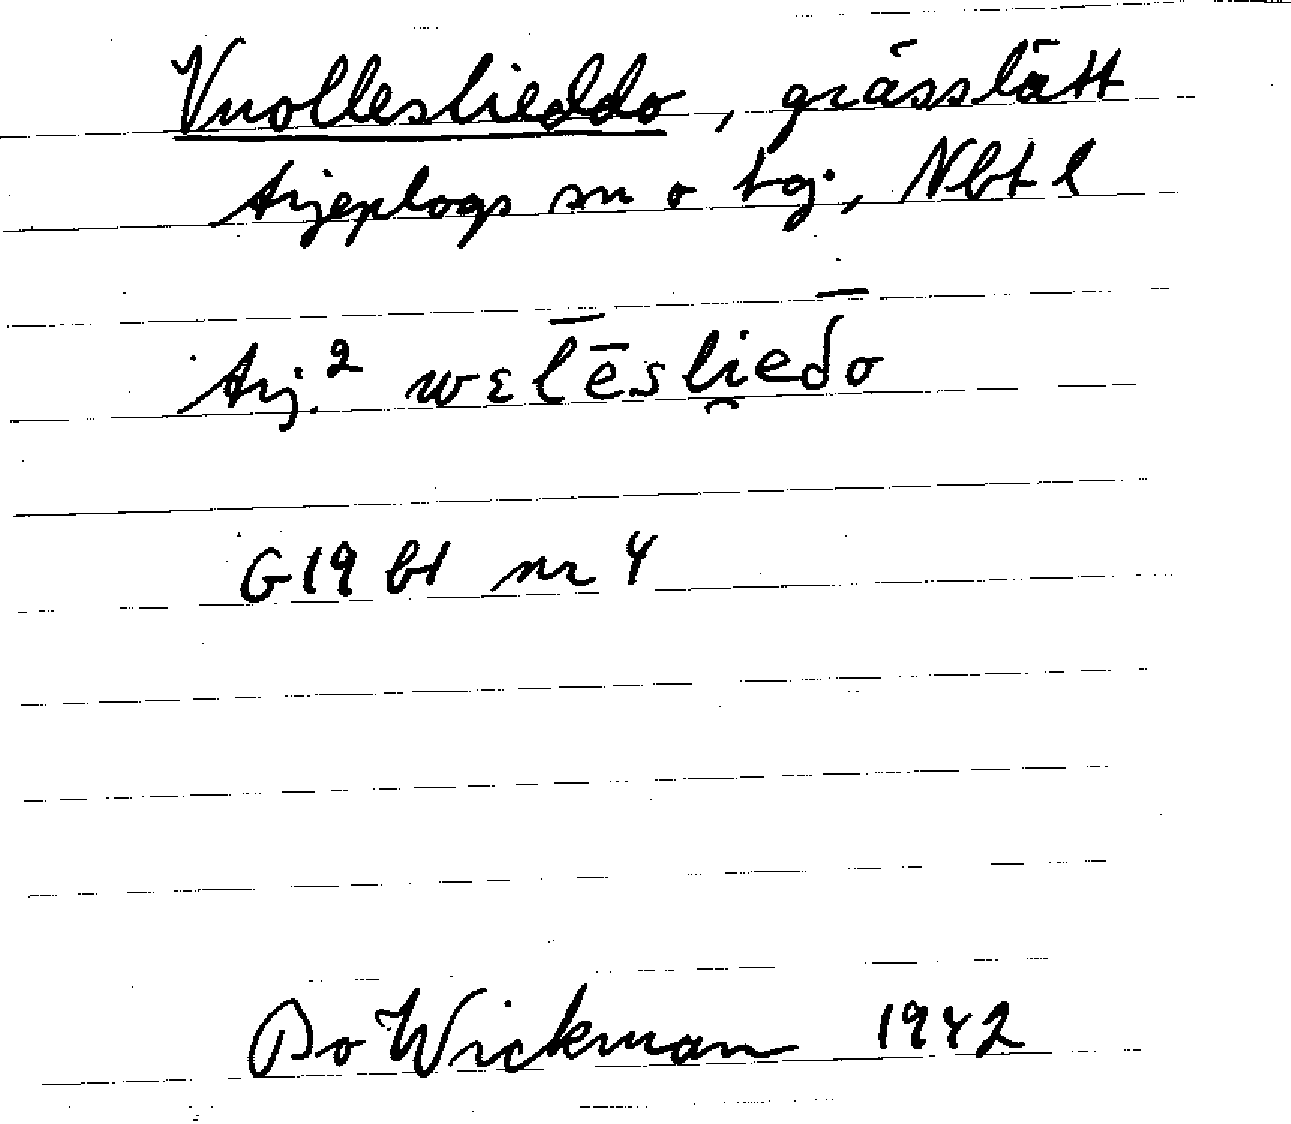 Vuolleslieddo, grässlätt
Arjeplogs sn o tg., Nbt l
Arj.² wεl̄ēsli̯eδ̄o
G19 bl nr 4
Bo Wickman 1942